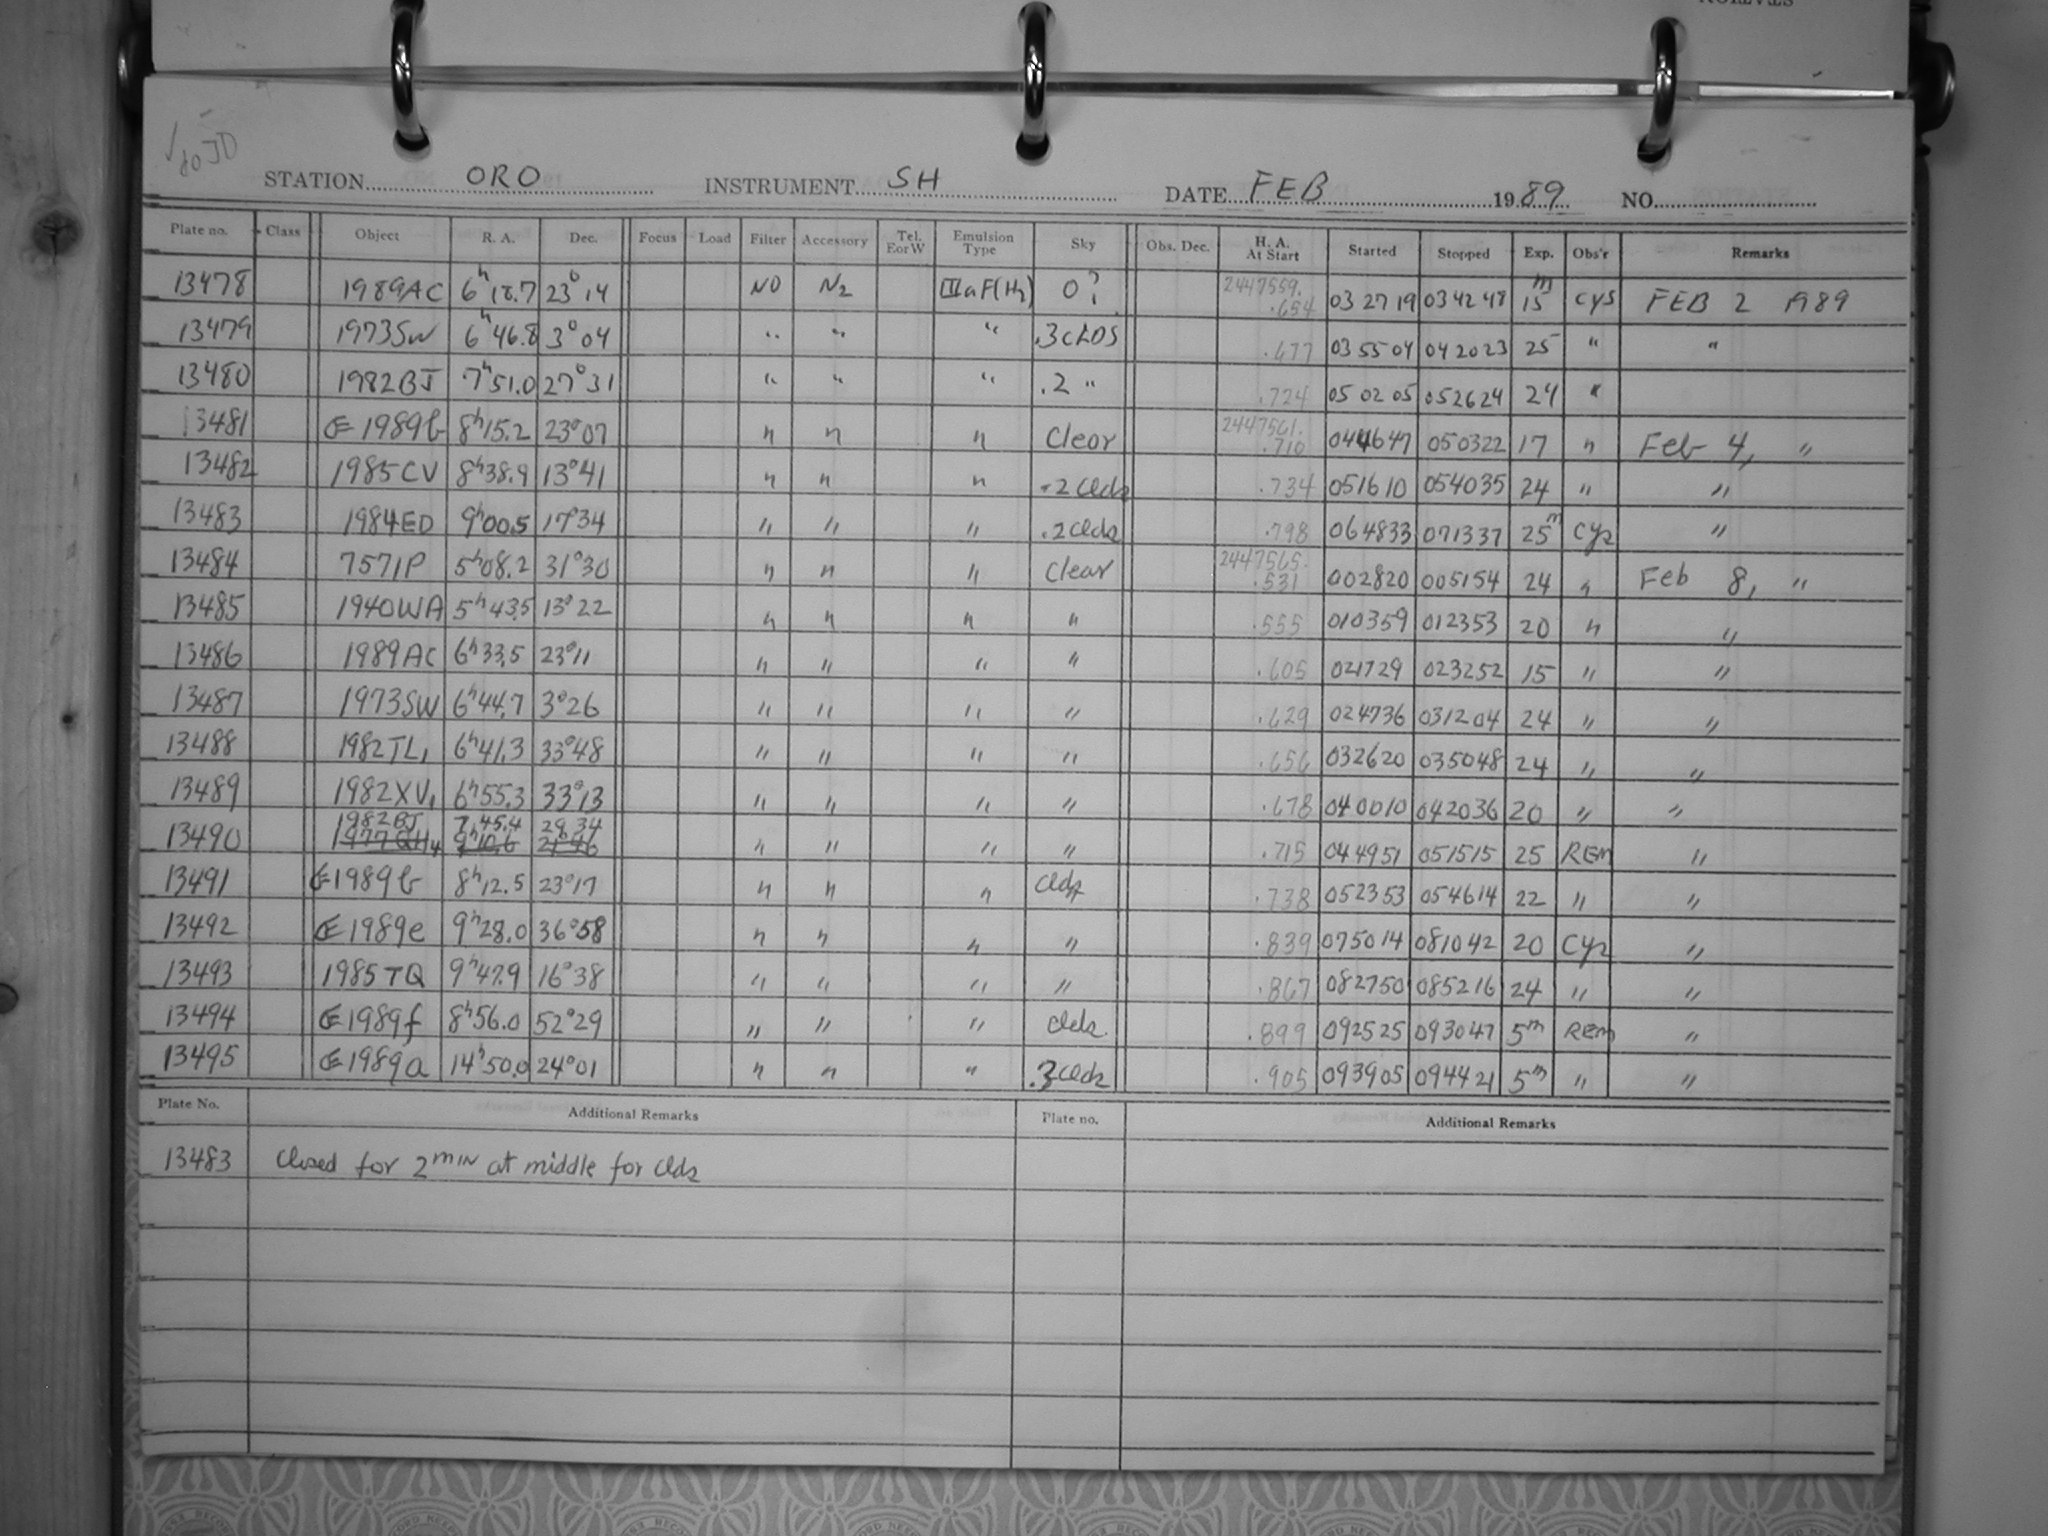 √ to JD
STATION ORO INSTRUMENT SH DATE FEB 1989 NO.
Plate no. Class Object R. A. Dec. Focus Load Filter Accessory Tel. E or W Emulsion Type Sky Obs. Dec. H. A. At Start Started Stopped Exp. Obs'r Remarks
13478 1989AC 6h18.7 23°14 NO N2 IIIaF(H2) 0? 2447559. .654 03 27 19 03 42 48 15m CYS FEB 2 1989
13479 1973SW 6h46.8 3°04 " " " .3CLDS .677 03 55 04 04 20 23 25 " "
13480 1982BJ 7h51.0 27°31 " " " .2 " .724 05 02 05 052624 24 "
13481 1989b 8h15.2 23°07 " " " Clear 2447561. .710 044647 050322 17 " Feb 4, "
13482 1985CV 8h38.9 13°41 " " " .2 Clds .734 051610 054035 24 " "
13483 1984ED 9h00.5 17°34 " " " .2 Clds .798 064833 071337 25m Cys "
13484 7571P 5h08.2 31°30 " " " Clear 2447565. .531 002820 005154 24 " Feb 8, "
13485 1940WA 5h43.5 13°22 " " " " .555 010359 012353 20 " "
13486 1989AC 6h33.5 23°11 " " " " .605 021729 023252 15 " "
13487 1973SW 6h44.7 3°26 " " " " .629 024736 031204 24 " "
13488 1982TL1 6h41.3 33°48 " " " " .656 032620 035048 24 " "
13489 1982XV1 6h55.3 33°13 " " " " .678 040010 042036 20 " "
1982BJ 7h45.4 28°34
13490 1977QH4 9h10.6 21°46 " " " " .715 044951 051515 25 REM "
13491 1989b 8h12.5 23°17 " " " Clds .738 052353 054614 22 " "
13492 1989e 9h28.0 36°58 " " " " .839 075014 081042 20 Cys "
13493 1985TQ 9h47.9 16°38 " " " " .867 082750 085216 24 " "
13494 1989f 8h56.0 52°29 " " " Clds .899 092525 093047 5m REM "
13495 1989a 14h50.0 24°01 " " " .3 Clds .905 093905 094421 5m " "
Plate No. Additional Remarks Plate no. Additional Remarks
13483 Closed for 2min at middle for Clds